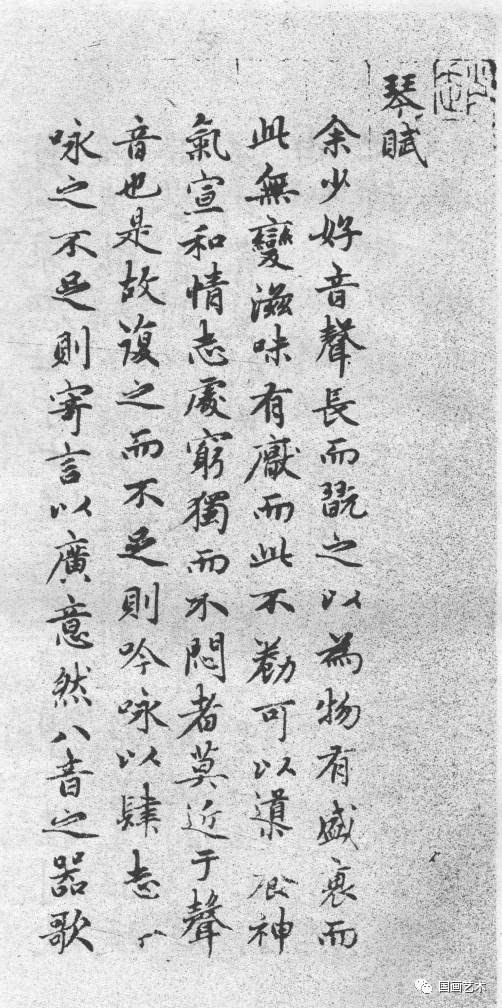 琴賦
余少好音聲長而翫之以為物有盛衰而
此無變滋味有厭而此不勌可以導養神
氣宣和情志處窮獨而不悶者莫近于聲
音也是故復之而不足則吟咏以肆志
咏之不足則寄言以廣意然八音之器歌
国画艺术